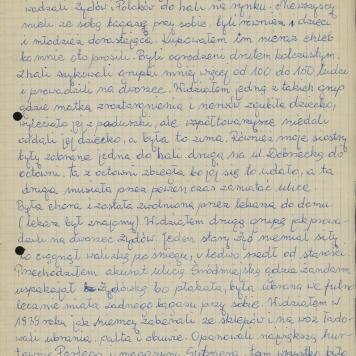 wadzali żydów i Polaków do hali na rynku. Niektórzy
mieli ze sobą bagaże przy sobie, byli również i dzieci
i młodzież dorastająca. Kupowałem im nieraz chleb
bo mnie oto prosili. Byli ogrodzeni drutem kolczastym.
Z hali szykowali grupki mniej więcej od 100 do 150 ludzi
i prowadzili na dworzec. Widziałem jedną z takich grup
gdzie matka z nerwów zgubiła dziecko,
wyleciało jej z poduszki, ale współtowarzysze
oddali jej dziecko, a była to zima. Również moje siostry
były zabrane jedna do hali druga na ul. Dobrzecką do
octowni. Ta z octowni zbiegła bo jej się to udało, a ta
druga musiała przez pewien czas zamiatać ulice.
Była chora i została zwolniona przez lekarza do domu
(lekarz był znajomy). Widziałem drugą grupę jak prowa-
dzili na dworzec żydów. Jeden stary żyd niemiał siły
to ciągnął walizkę po śniegu, i ledwo szedł od starości.
Przechodziłem akurat ulicą Śródmiejską gdzie żandarm
żydówkę bo płakała, była ubrana we futro
lecz nie miała żadnego bagażu przy sobie. Widziałem w
1939 roku jak Niemcy zabierali ze sklepów i na wóz łado-
wali ubrania, palta i obuwie. Opanowali największą hur-
townię i magazyny tam wszystko było